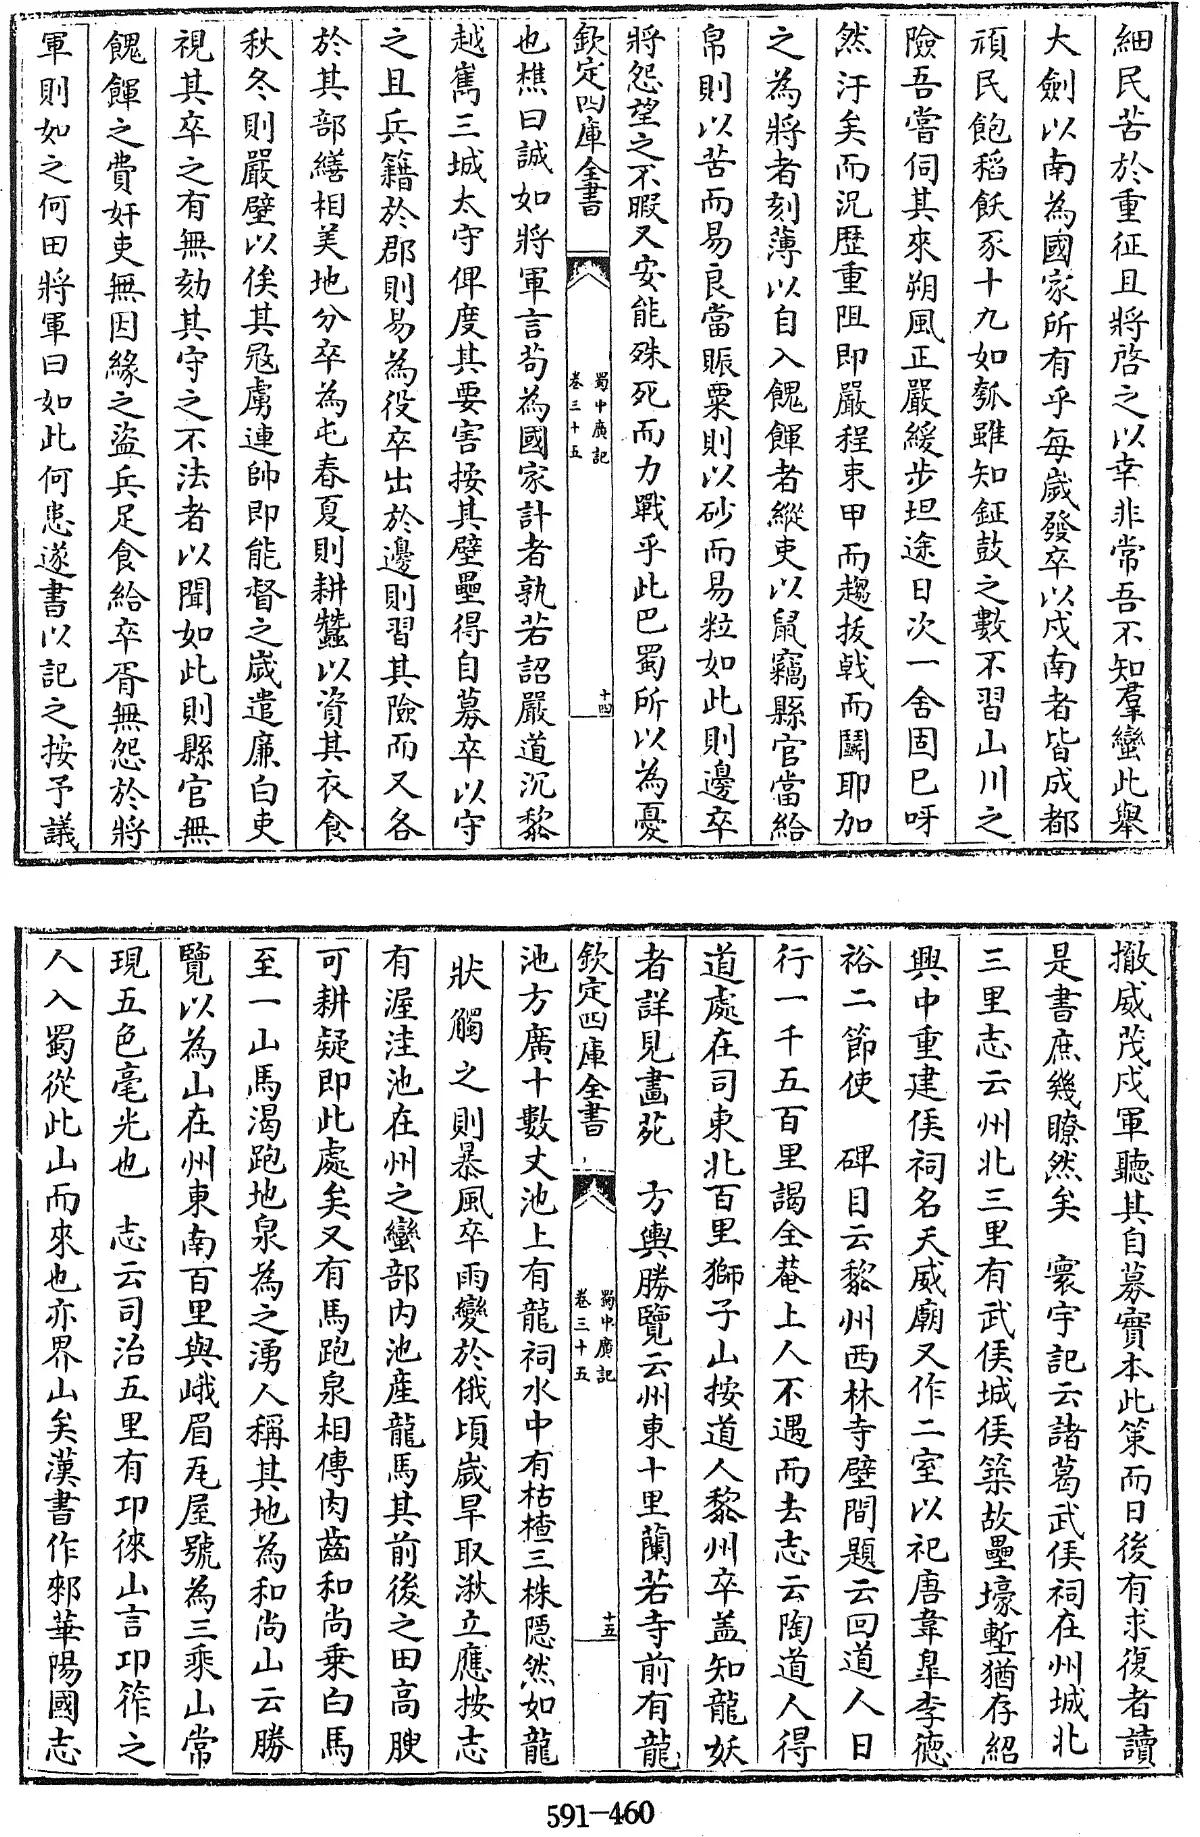 細民苦於重征且將啓之以幸非常吾不知羣蠻此舉
大劍以南為國家所有乎每歲發卒以戍南者皆成都
頑民飽稻飫豕十九如瓠雖知鉦鼓之數不習山川之
險吾嘗伺其來朔風正嚴緩步坦途日次一舍固已呀
然汗矣而況歷重阻即嚴程束甲而趨拔㦸而鬬耶加
之為將者刻薄以自入餽餫者縱吏以鼠竊縣官當給
帛則以苦而易良當賑粟則以砂而易粒如此則邊卒
將怨望之不暇又安能殊死而力戰乎此巴蜀所以為憂
欽定四庫全書
蜀中廣記
卷三十五
十四
也樵曰誠如將軍言茍為國家計者孰若詔嚴道沉黎
越嶲三城太守俾度其要害按其壁壘得自募卒以守
之且兵籍於郡則易為役卒出於邊則習其險而又各
於其部繕相美地分卒為屯春夏則耕蠶以資其衣食
秋冬則嚴壁以俟其冦虜連帥即能督之歲遣廉白吏
視其卒之有無劾其守之不法者以聞如此則縣官無
餽餫之費奸吏無因緣之盜兵足食給卒胥無怨於將
軍則如之何田將軍曰如此何患遂書以記之按予議
撤威茂戍軍聽其自募實本此策而日後有求復者讀
是書庶幾瞭然矣　寰宇記云諸葛武侯祠在州城北
三里志云州北三里有武侯城侯築故壘壕塹猶存紹
興中重建侯祠名天威廟又作二室以祀唐韋臯李德
裕二節使　碑目云黎州西林寺壁間題云回道人日
行一千五百里謁全菴上人不遇而去志云陶道人得
道處在司東北百里獅子山按道人黎州卒盖知龍妖
者詳見畫苑　方輿勝覽云州東十里蘭若寺前有龍
欽定四庫全書
蜀中廣記
卷三十五
十五
池方廣十數丈池上有龍祠水中有枯楂三株隱然如龍
狀觸之則暴風卒雨變於俄頃歲旱取湫立應按志
有渥洼池在州之蠻部内池産龍馬其前後之田高腴
可耕疑即此處矣又有馬跑泉相傳肉齒和尚乗白馬
至一山馬渴跑地泉為之湧人稱其地為和尚山云勝
覽以為山在州東南百里與峨眉瓦屋號為三乘山常
現五色毫光也　志云司治五里有卭徠山言卭筰之
人入蜀從此山而來也亦界山矣漢書作郲華陽國志
591-460